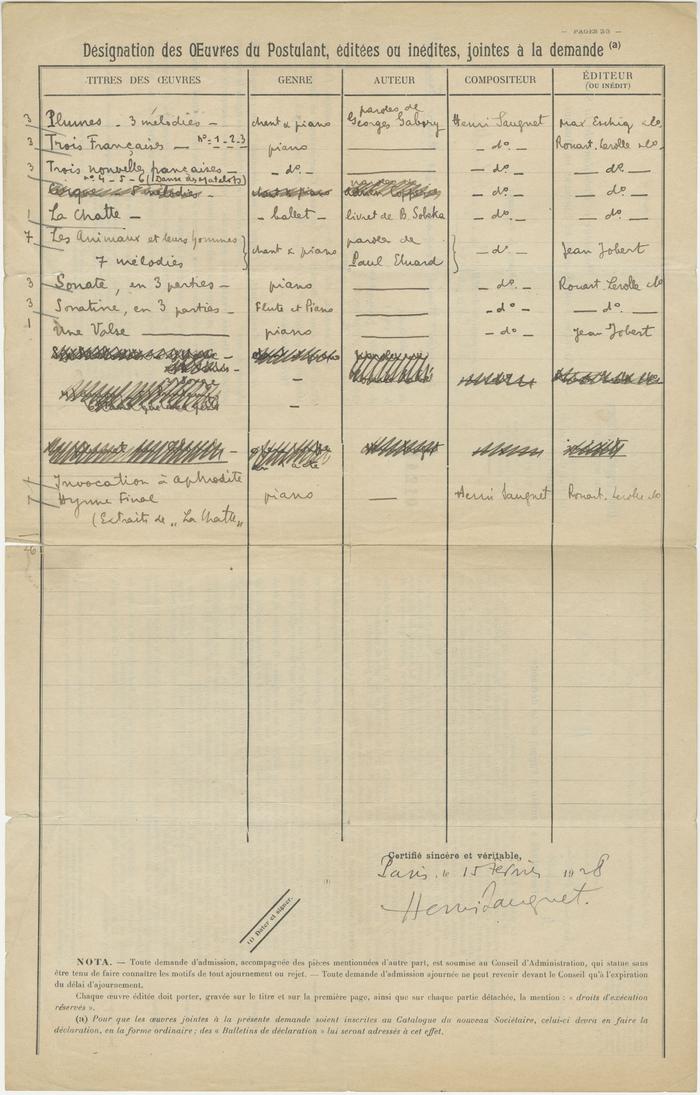 — PAGES 2-3 —
Désignation des Œuvres du Postulant, éditées ou inédites, jointes à la demande (a)
TITRES DES ŒUVRES GENRE AUTEUR COMPOSITEUR ÉDITEUR
(OU INÉDIT)
3 Plumes - 3 mélodies - chant & piano paroles de Georges Gabory Henri Sauguet Max Eschig & Co.
3 Trois Françaises — Nos 1-2-3 piano — do. — Rouart. Lerolle & Co.
3 Trois nouvelles françaises — — do. — — do. — — do. —
nos 4 - 5 - 6 (Danse des Matelots)
mélodies — — do. — — do. —
1 La Chatte — - ballet - livret de B. Sobeka — do. — — do. —
7 Les Animaux et leurs hommes
7 mélodies } chant & piano paroles de Paul Eluard } — do — Jean Jobert
3 Sonate, en 3 parties — piano — do. — Rouart. Lerolle & Co
3 Sonatine, en 3 parties — Flute et Piano — do — — do. —
1 Une Valse piano — do — Jean Jobert
Invocation à aphrodite
Hymne Final piano — Henri Sauguet Rouart. Lerolle & Co
(Extraits de „ La Chatte „
Certifié sincère et véritable,
Paris, le 15 Février 1928
(1)
Henri Sauguet.
(1) Dater et signer.
NOTA. — Toute demande d'admission, accompagnée des pièces mentionnées d'autre part, est soumise au Conseil d'Administration, qui statue sans
être tenu de faire connaître les motifs de tout ajournement ou rejet. — Toute demande d'admission ajournée ne peut revenir devant le Conseil qu'à l'expiration
du délai d'ajournement.
Chaque œuvre éditée doit porter, gravée sur le titre et sur la première page, ainsi que sur chaque partie détachée, la mention : « droits d'exécution
réservés ».
(a) Pour que les œuvres jointes à la présente demande soient inscrites au Catalogue du nouveau Sociétaire, celui-ci devra en faire la
déclaration, en la forme ordinaire ; des « Bulletins de déclaration » lui seront adressés à cet effet.